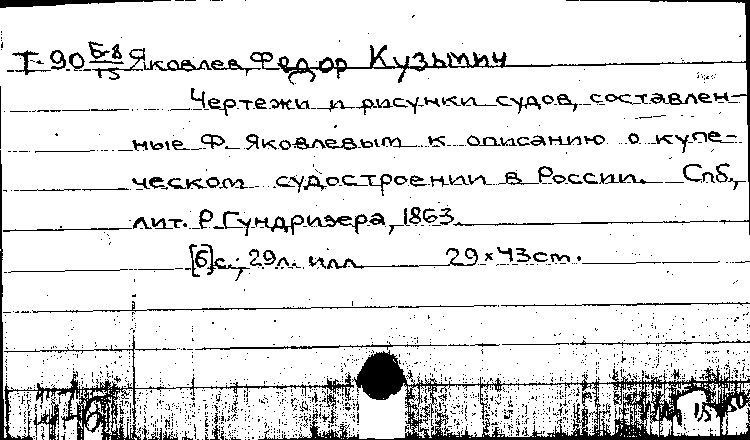 Т-90 Б-8/15 Яковлев, Федор Кузьмич
Чертежи и рисунки судов, составлен-
ные Ф. Яковлевым к описанию о купе-
ческом судостроении в России. Спб.,
лит. Р. Гундризера, 1863.
[6]с.; 29л. илл. 29×43cm.